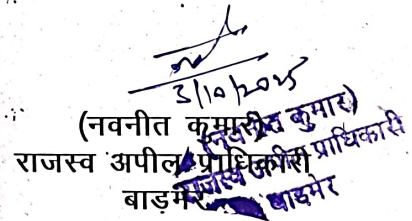 3/10/2025
(नवनीत कुमार)
राजस्व अपील प्राधिकारी
बाड़मेर
(नवनीत कुमार)
राजस्व अपील प्राधिकारी
बाडमेर